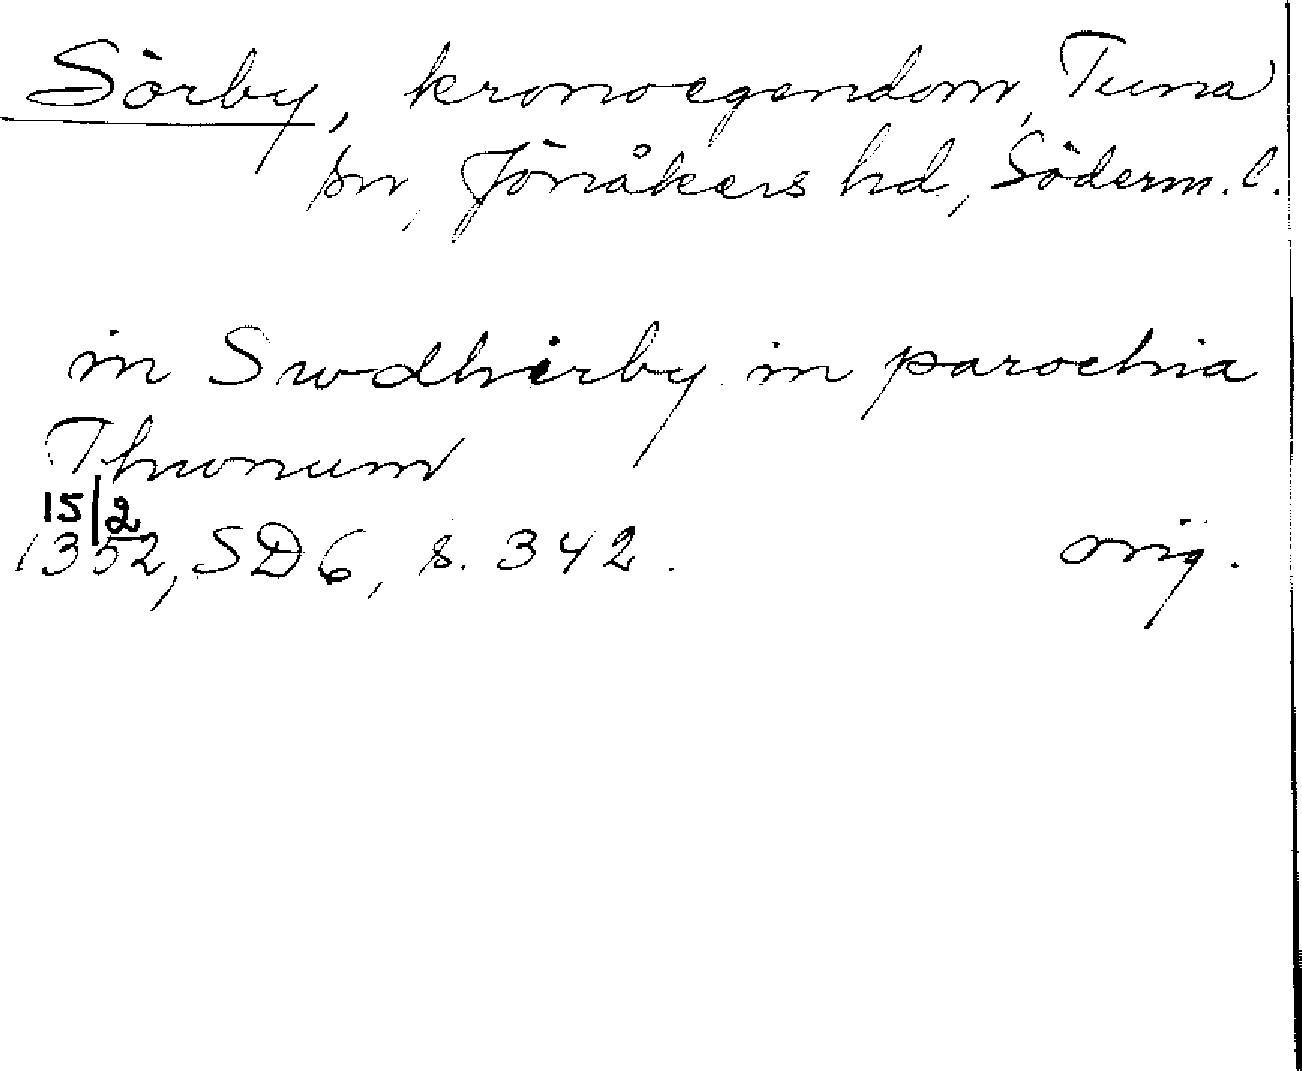 Sörby, kronoegendom, Tuna
sn, Jönåkers hd, Söderm. l.
in Swdhirby in parochia
Thunum
15/2
1352, SD 6, s. 342. orig.